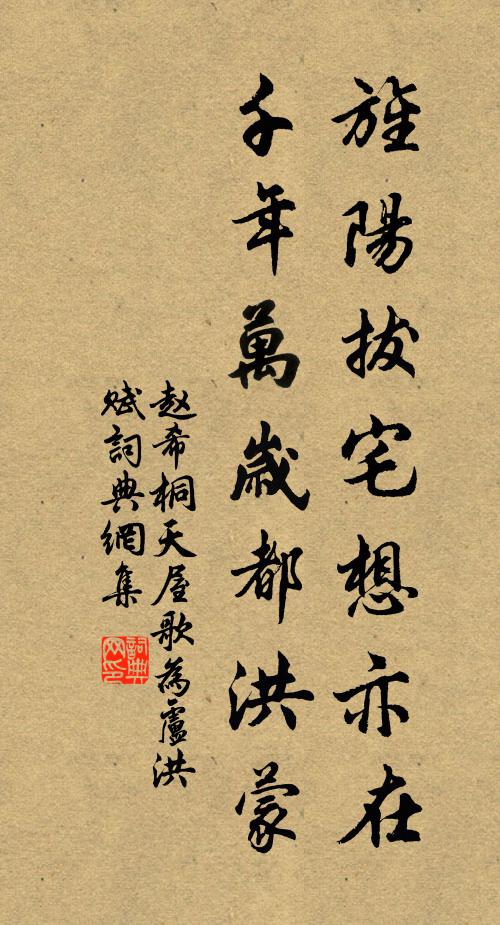 旌陽拔宅想亦在
千年萬歲都洪蒙
赵希桐天屋歌為盧洪
賦詞典網集
詞典
网印